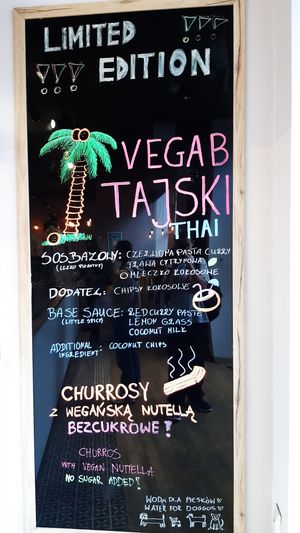 LIMITED
EDITION
VEGAB
TAJSKI
THAI
SOS BAZOWY: CZERWONA PASTA CURRY
(LEKKO PIKANTNY) TRAWA CYTRYNOWA
MLECZKO KOKOSOWE
DODATEK: CHIPSY KOKOSOWE
BASE SAUCE: RED CURRY PASTE
(LITTLE SPICY) LEMON GRASS
COCONUT MILK
ADDITIONAL : COCONUT CHIPS
INGREDIENT
CHURROSY
Z WEGAŃSKĄ NUTELLĄ
BEZCUKROWE!
CHURROS
WITH VEGAN NUTTELLA
NO SUGAR ADDED!
WODA DLA PIESKÓW
WATER FOR DOGGOS